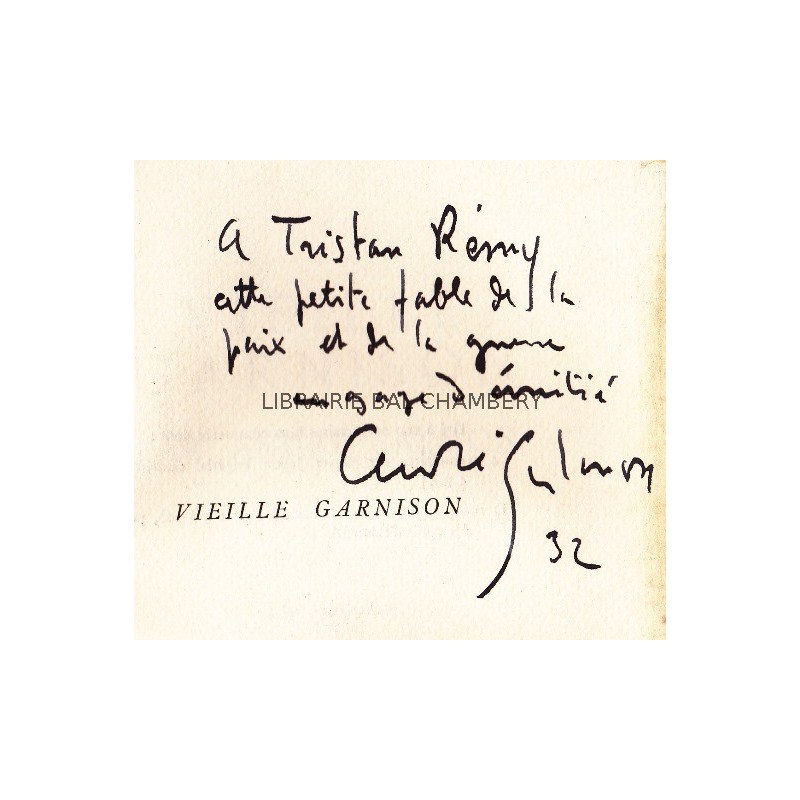 A Tristan Rémy
cette petite fable de la
paix et de la guerre
en gage d'amitié
LIBRAIRIE BAL CHAMBERY
André Salmon
VIEILLE GARNISON
32